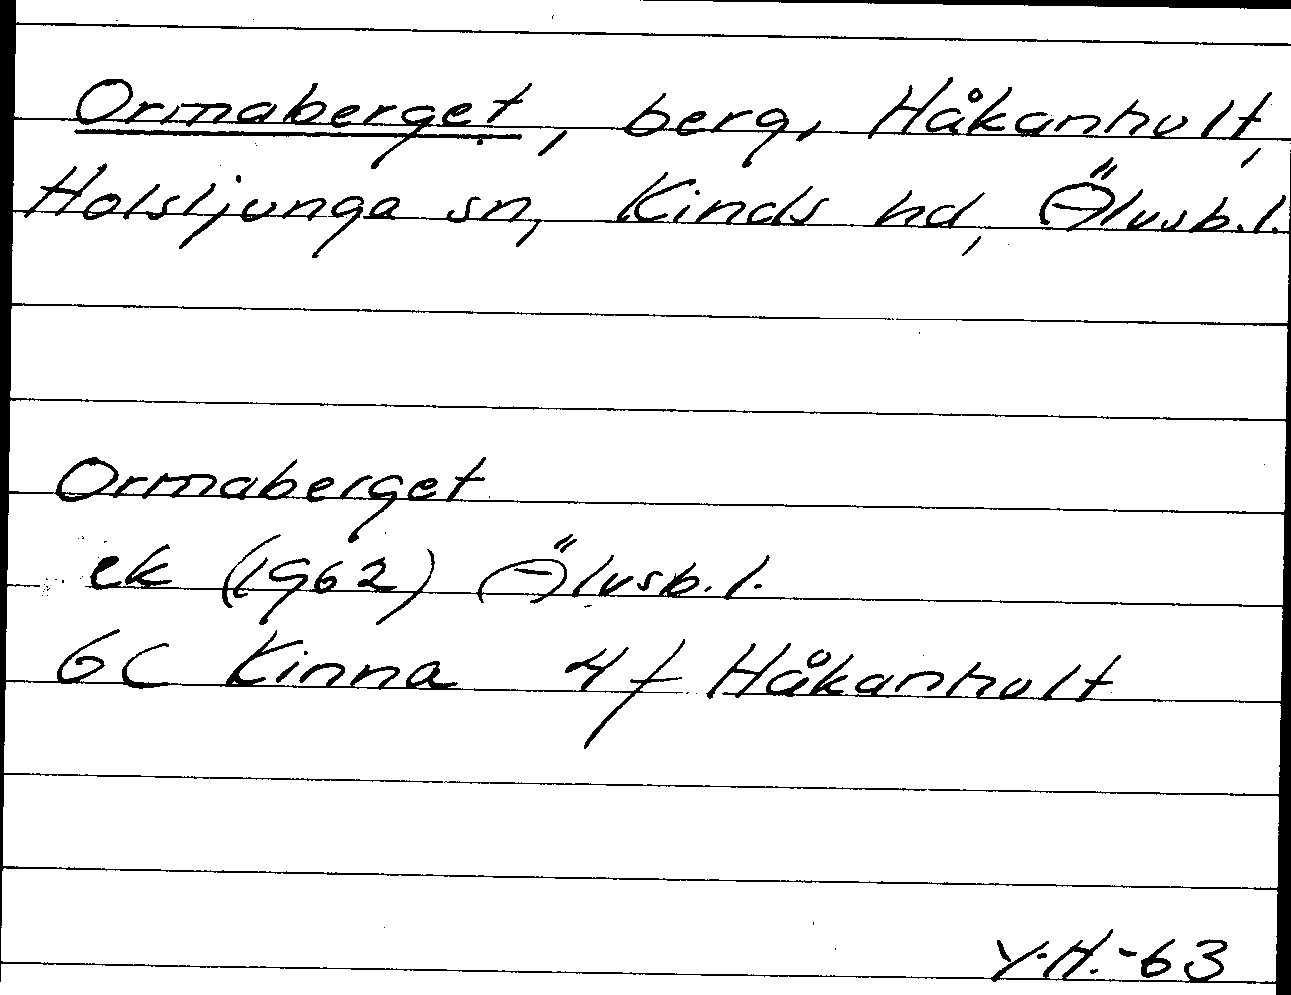 Ormaberget, berg, Håkanhult,
Holsljunga sn, Kinds hd, Älvsb.l.
Ormaberget
ek (1962) Älvsb.l.
6C Kinna 4f Håkanhult
Y.H.-63